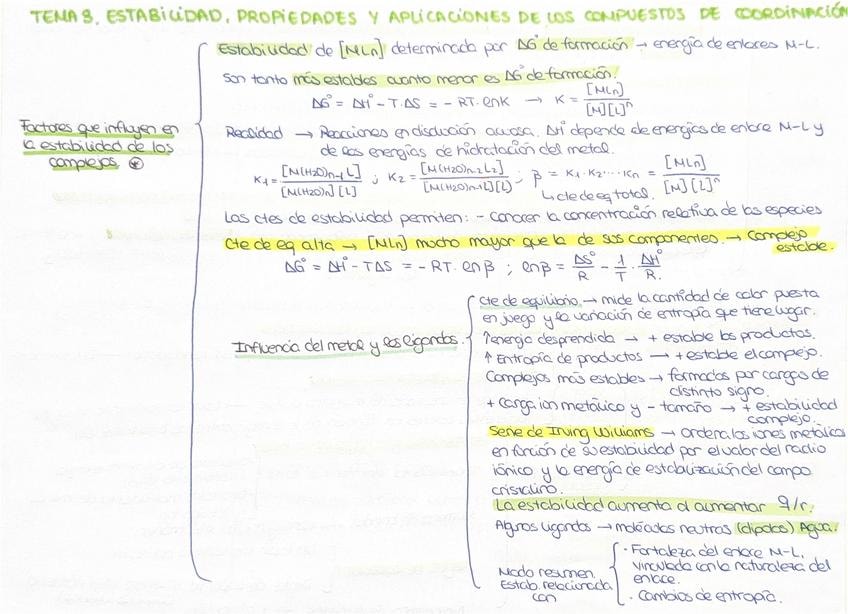 TEMA 8. ESTABILIDAD, PROPIEDADES Y APLICACIONES DE LOS COMPUESTOS DE COORDINACIÓN
Factores que influyen en
la estabilidad de los
complejos. *
Estabilidad de [MLn] determinada por ΔG° de formación → energía de enlaces M-L.
Son tanto más estables cuanto menor es ΔG° de formación.
ΔG° = ΔH° - T·ΔS = -RT·lnK → K = [MLn] / [M][L]^n
Realidad → Reacciones en disolución acuosa. ΔH° depende de energías de enlace M-L y
de las energías de hidratación del metal.
K1 = [M(H2O)n-1 L] / [M(H2O)n][L] ; K2 = [M(H2O)n-2 L2] / [M(H2O)n-1 L][L] ; β = K1·K2···Kn = [MLn] / [M][L]^n
↳ cte de eq total.
Las ctes de estabilidad permiten: - Conocer la concentración relativa de las especies
Cte de eq alta → [MLn] mucho mayor que la de sus componentes. → Complejo
estable.
ΔG° = ΔH° - TΔS = -RT·lnβ ; lnβ = ΔS°/R - 1/T · ΔH°/R.
Influencia del metal y los ligandos.
Cte de equilibrio. → mide la cantidad de calor puesta
en juego y la variación de entropía que tiene lugar.
↑ energía desprendida → + estable los productos.
↑ Entropía de productos → + estable el complejo.
Complejos más estables → formados por cargas de
distinto signo.
+ carga ion metálico y - tamaño → + estabilidad
complejo.
Serie de Irving Williams → Ordena los iones metálicos
en función de su estabilidad por el valor del radio
iónico y la energía de estabilización del campo
cristalino.
La estabilidad aumenta al aumentar q/r.
Algunos ligandos → moléculas neutras (dipolos) Agua.
Modo resumen
Estab. relacionada
con
· Fortaleza del enlace M-L,
vinculada con la naturaleza del
enlace.
· Cambios de entropía.